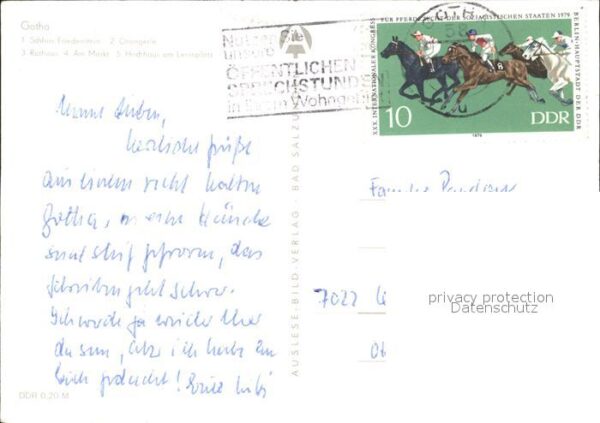 Gotha
1. Schloss Friedenstein 2. Orangerie
3. Rathaus 4. Am Markt 5. Hochhaus am Leninplatz
Nutzen Sie
unsere
ÖFFENTLICHEN
SPRECHSTUNDEN
in Ihrem Wohngebiet
GOTHA
58
XXX. INTERNATIONALER KONGRESS
FÜR PFERDEZUCHT DER SOZIALISTISCHEN STAATEN 1979
BERLIN-HAUPTSTADT DER DDR
10
DDR
1979
Meine Lieben,
herzliche Grüße
aus einem recht kalten
Gotha, meine Hände
sind steif gefroren, das
Schreiben geht schwer.
Ich werde ja wieder
da sein, ich habe an
Euch gedacht! Eure
AUSLESE-BILD-VERLAG · BAD SALZU
Familie
7022
privacy protection
Datenschutz
DDR 0,20 M